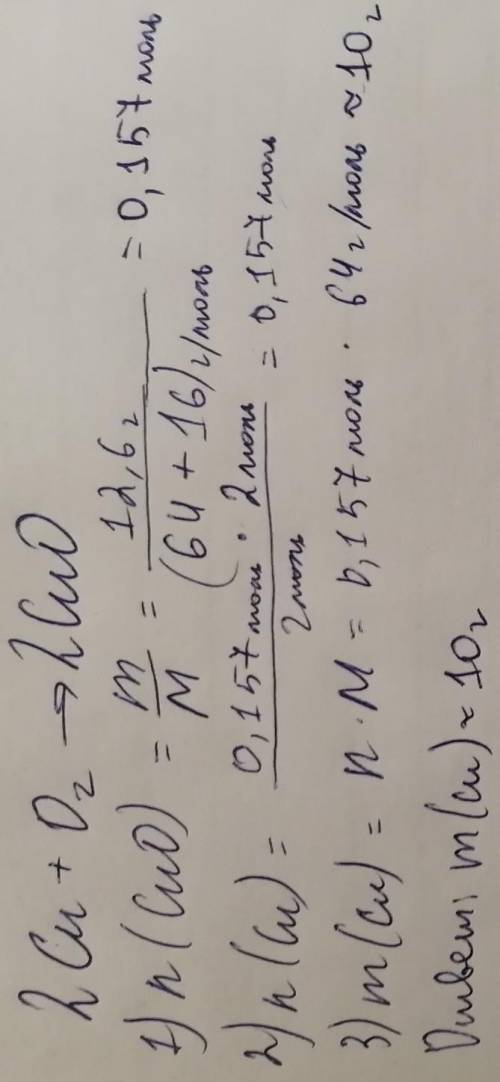 2Cu + O₂ → 2CuO
1) n(CuO) = m/M = 12,6г/(64 + 16)г/моль = 0,157моль
2) n(Cu) = 0,157моль · 2моль/2моль = 0,157моль
3) m(Cu) = n · M = 0,157моль · 64г/моль ≈ 10г
Ответ: m(Cu) ≈ 10г